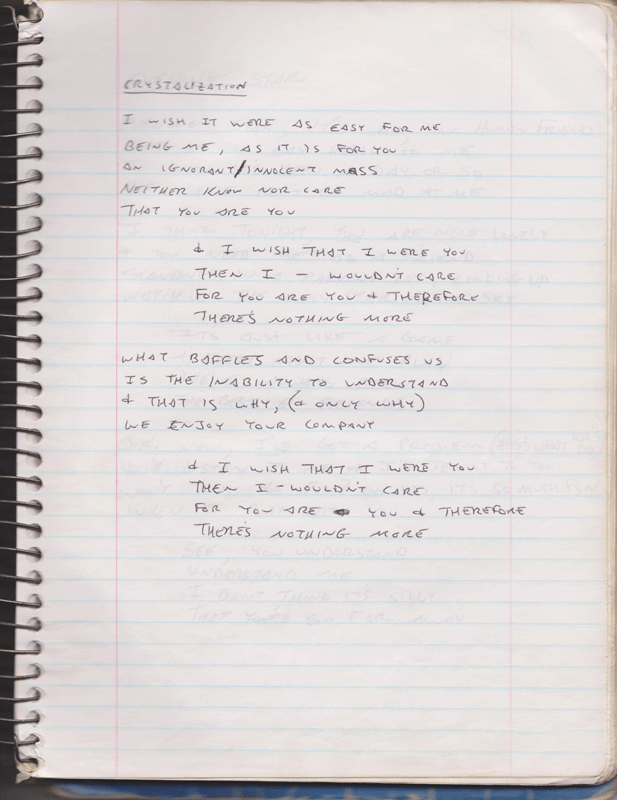 CRYSTALIZATION
I WISH IT WERE AS EASY FOR ME
BEING ME, AS IT IS FOR YOU
AN IGNORANT/INNOCENT MASS
NEITHER KNOW NOR CARE
THAT YOU ARE YOU
& I WISH THAT I WERE YOU
THEN I - WOULDN'T CARE
FOR YOU ARE YOU & THEREFORE
THERE'S NOTHING MORE
WHAT BAFFLES AND CONFUSES US
IS THE INABILITY TO UNDERSTAND
& THAT IS WHY, (& ONLY WHY)
WE ENJOY YOUR COMPANY
& I WISH THAT I WERE YOU
THEN I - WOULDN'T CARE
FOR YOU ARE YOU & THEREFORE
THERE'S NOTHING MORE
SEE, YOU UNDERSTAND
UNDERSTAND ME
I DON'T THINK IT'S SILLY
THAT YOU'RE SO FAR AWAY